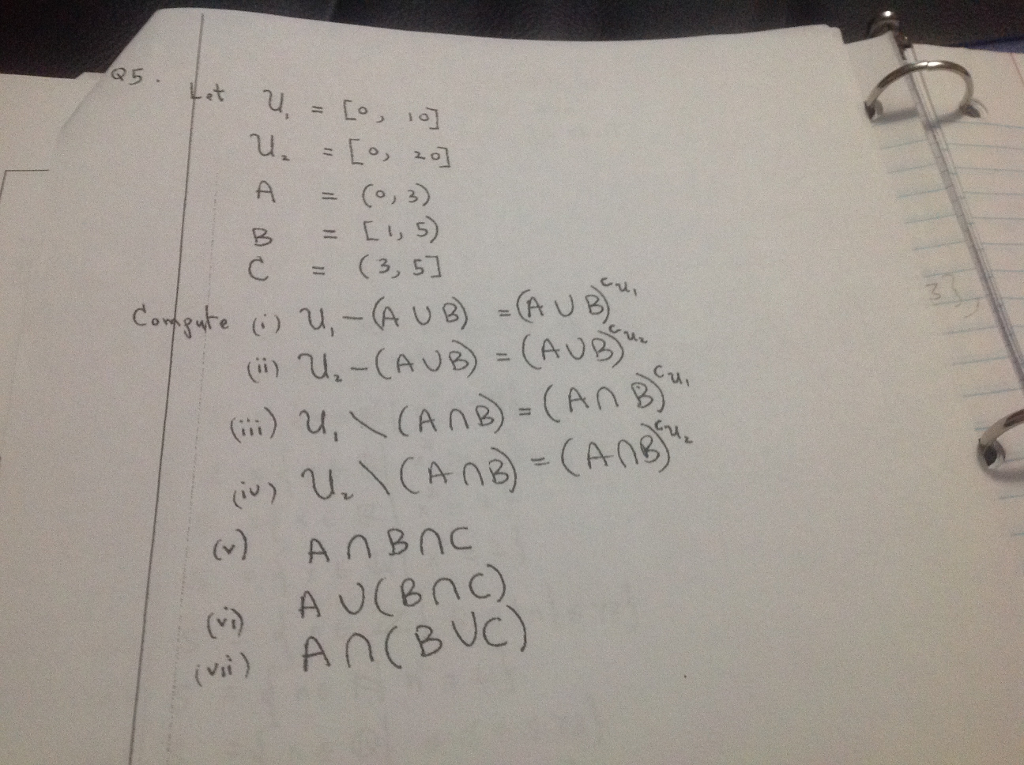 Q5.
Let U₁ = [0, 10]
U₂ = [0, 20]
A = (0, 3)
B = [1, 5)
C = (3, 5]
Compute (i) U₁ - (A ∪ B) = (A ∪ B)^cU₁
(ii) U₂ - (A ∪ B) = (A ∪ B)^cU₂
(iii) U₁ \ (A ∩ B) = (A ∩ B)^cU₁
(iv) U₂ \ (A ∩ B) = (A ∩ B)^cU₂
(v) A ∩ B ∩ C
(vi) A ∪ (B ∩ C)
(vii) A ∩ (B ∪ C)